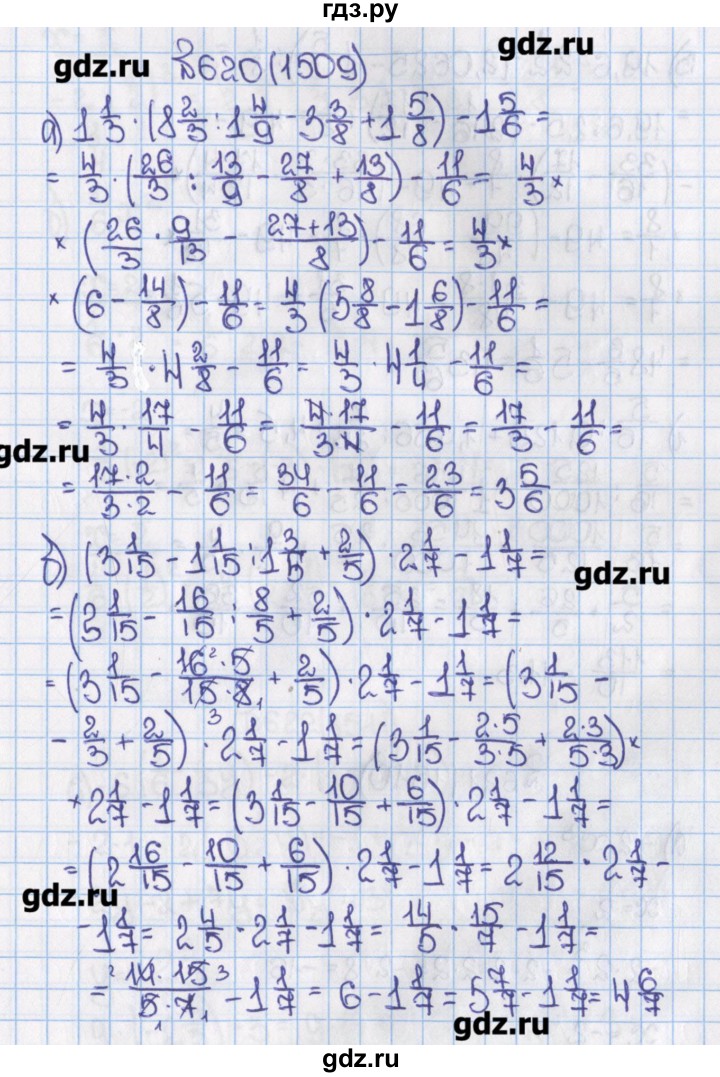 гдз.ру
gdz.ru
gdz.ru
№620(1509)
а) 1 1/3 · (8 2/3 : 1 4/9 - 3 3/8 + 1 5/8) - 1 5/6 =
= 4/3 · (26/3 : 13/9 - 27/8 + 13/8) - 11/6 = 4/3 ×
× (26/3 · 9/13 - (27+13)/8) - 11/6 = 4/3 ×
× (6 - 14/8) - 11/6 = 4/3 (5 8/8 - 1 6/8) - 11/6 =
= 4/3 · 4 2/8 - 11/6 = 4/3 · 4 1/4 - 11/6 =
= 4/3 · 17/4 - 11/6 = (4·17)/(3·4) - 11/6 = 17/3 - 11/6 =
gdz.ru
= (17·2)/(3·2) - 11/6 = 34/6 - 11/6 = 23/6 = 3 5/6
б) (3 1/15 - 1 1/15 : 1 3/5 + 2/5) · 2 1/7 - 1 1/7 =
gdz.ru
= (3 1/15 - 16/15 : 8/5 + 2/5) · 2 1/7 - 1 1/7 =
= (3 1/15 - (16 2 · 5)/(15 3 · 8 1) + 2/5) · 2 1/7 - 1 1/7 = (3 1/15 -
- 2/3 + 2/5) · 2 1/7 - 1 1/7 = (3 1/15 - (2·5)/(3·5) + (2·3)/(5·3)) ×
× 2 1/7 - 1 1/7 = (3 1/15 - 10/15 + 6/15) · 2 1/7 - 1 1/7 =
= (2 16/15 - 10/15 + 6/15) · 2 1/7 - 1 1/7 = 2 12/15 · 2 1/7 -
gdz.ru
- 1 1/7 = 2 4/5 · 2 1/7 - 1 1/7 = 14/5 · 15/7 - 1 1/7 =
= (2 14 · 15 3)/(5 1 · 7 1) - 1 1/7 = 6 - 1 1/7 = 5 7/7 - 1 1/7 = 4 6/7
gdz.ru
gdz.ru